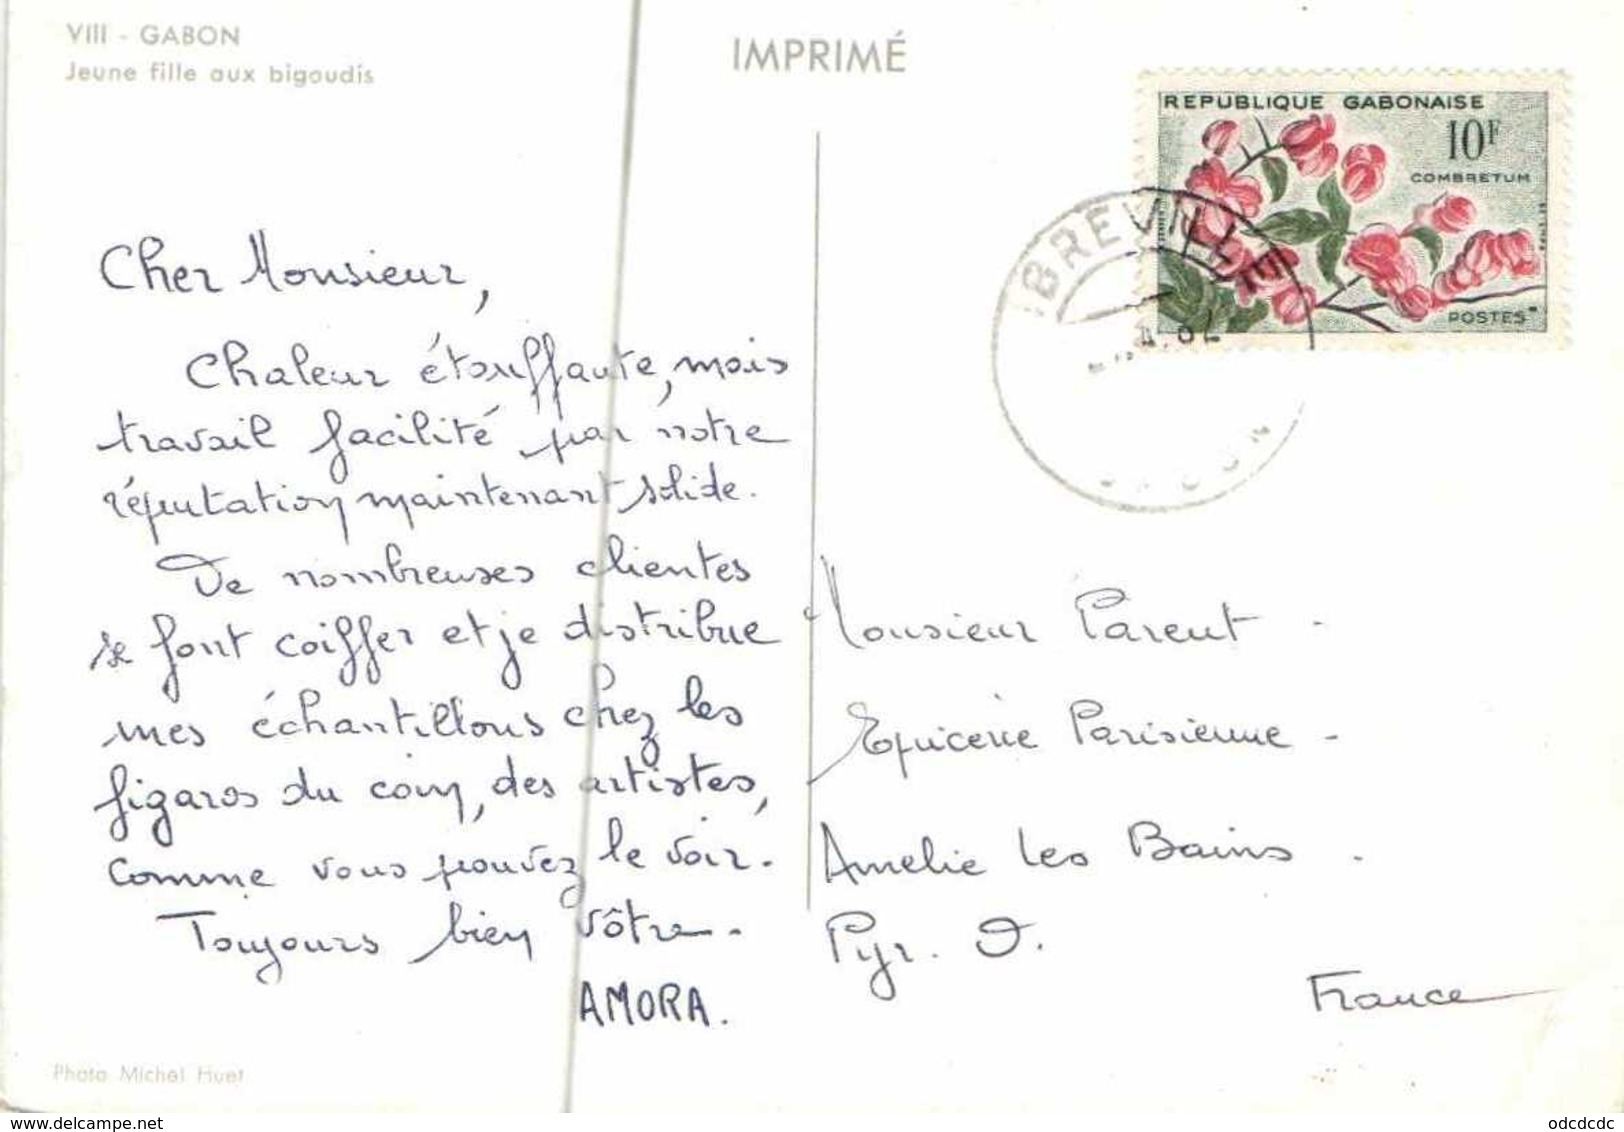 VIII - GABON
Jeune fille aux bigoudis
IMPRIMÉ
REPUBLIQUE GABONAISE
10F
COMBRETUM
POSTES
LIBREVILLE
GABON
Cher Monsieur,
Chaleur étouffante, mais
travail facilité par notre
réputation maintenant solide.
De nombreuses clientes
se font coiffer et je distribue
mes échantillons chez les
figaros du coin, des artistes,
comme vous pouvez le voir.
Toujours bien vôtre.
AMORA.
Monsieur Parent -
Epicerie Parisienne -
Amelie les Bains -
Pyr. O.
France
Photo Michel Huet
odcdcdc